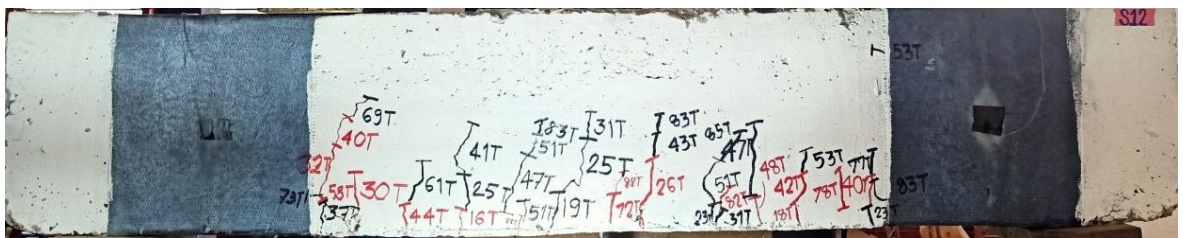 S12
53T
69T
40T
32T
73T
58T
37T
30T
61T
44T
41T
25T
16T
183T
51T
47T
51T
31T
25T
19T
83T
43T
88T
26T
72T
85T
47T
51T
82T
23T
31T
48T
42T
18T
53T
78T
77T
40T
83T
23T